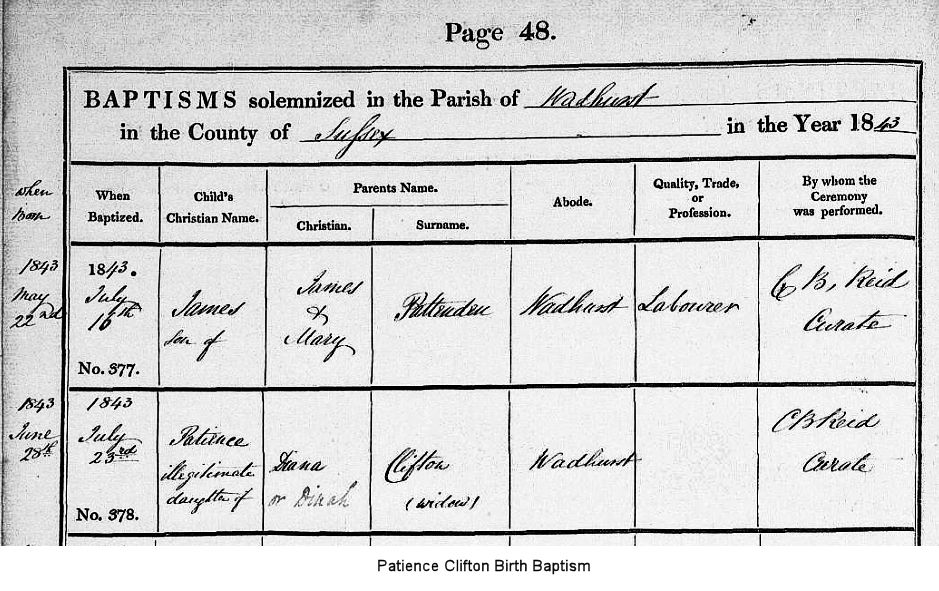 Page 48.
BAPTISMS solemnized in the Parish of Wadhurst
in the County of Sussex in the Year 1843
when
born
When
Baptized.
Child's
Christian Name.
Parents Name.
Christian.
Surname.
Abode.
Quality, Trade,
or
Profession.
By whom the
Ceremony
was performed.
1843
May
22nd
1843.
July
16th
No. 377.
James
son of
James
&
Mary
Pattenden
Wadhurst
Labourer
C B. Reid
Curate
1843
June
28th
1843
July
23rd
No. 378.
Patience
illegitimate
daughter of
Diana
or Dinah
Clifton
(widow)
Wadhurst
C B Reid
Curate
Patience Clifton Birth Baptism